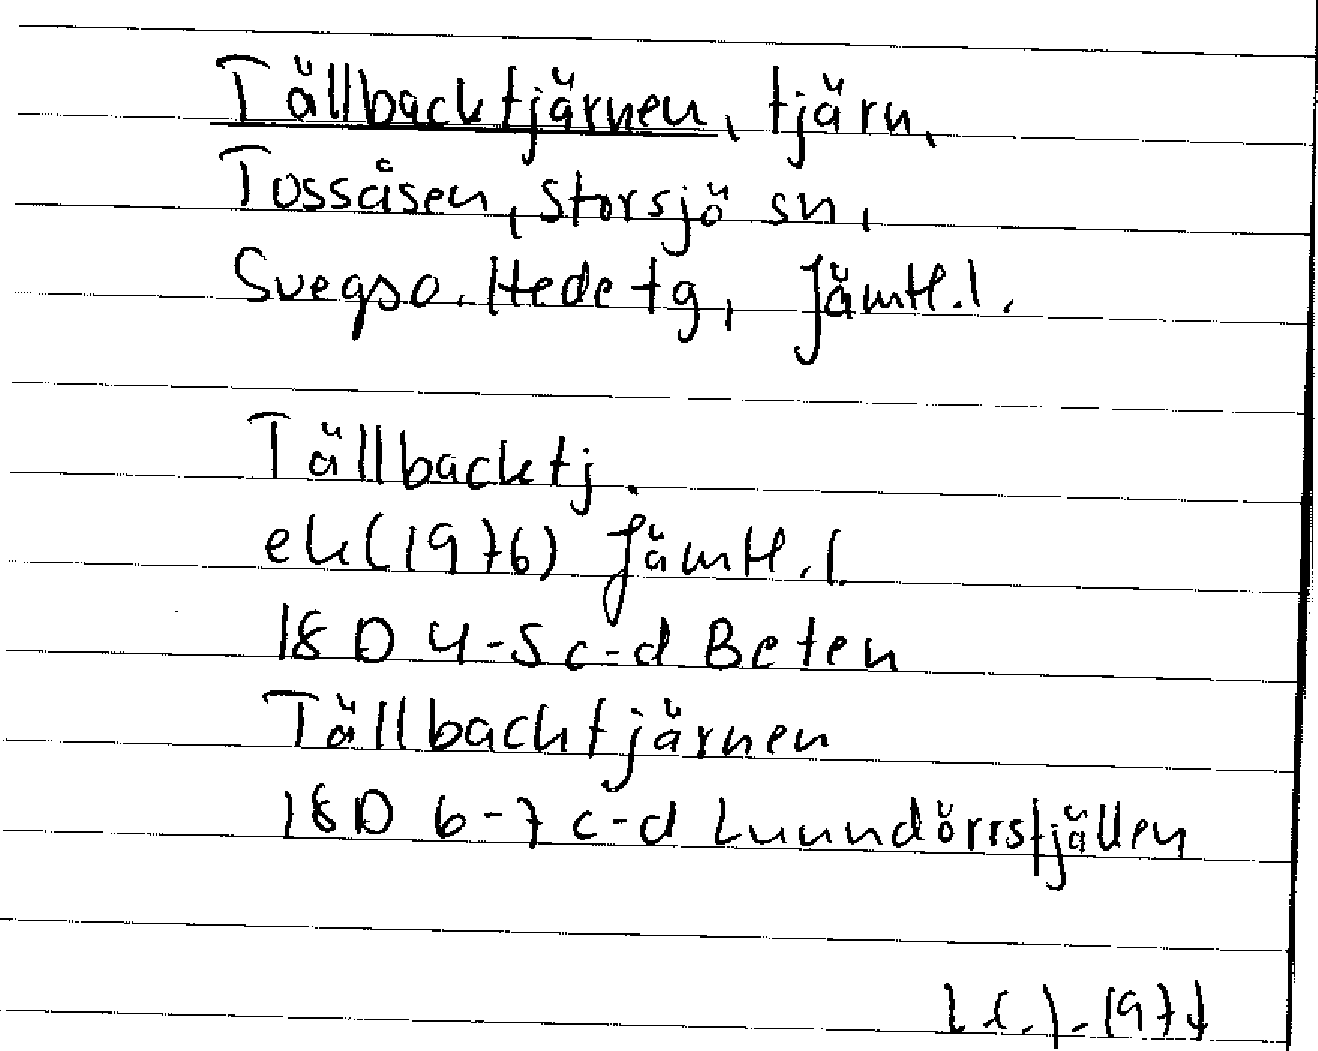 Tällbacktjärnen, tjärn,
Tossåsen, Storsjö sn,
Svegs o. Hede tg, Jämtl. l.
Tällbacktj.
ek (1976) Jämtl. l.
18 D 4-5 c-d Beten
Tällbacktjärnen
18D 6-7 c-d Lunndörrsfjällen